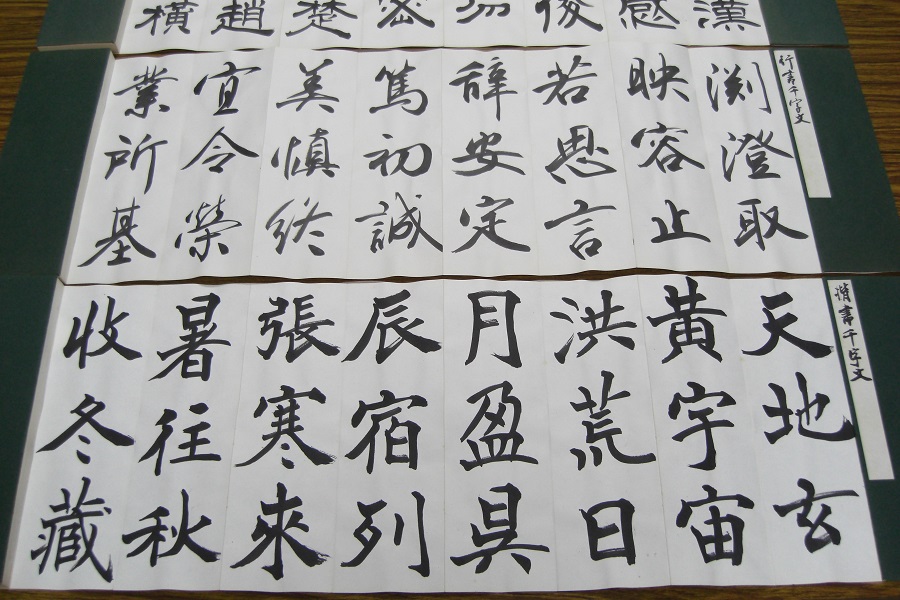 漢
感
俊
勿
楚
趙
橫
行書千字文
渕澄取
映容止
若思言
辞安定
篤初誠
美慎終
宜令榮
業所基
楷書千字文
天地玄
黄宇宙
洪荒日
月盈具
辰宿列
張寒來
暑往秋
收冬藏